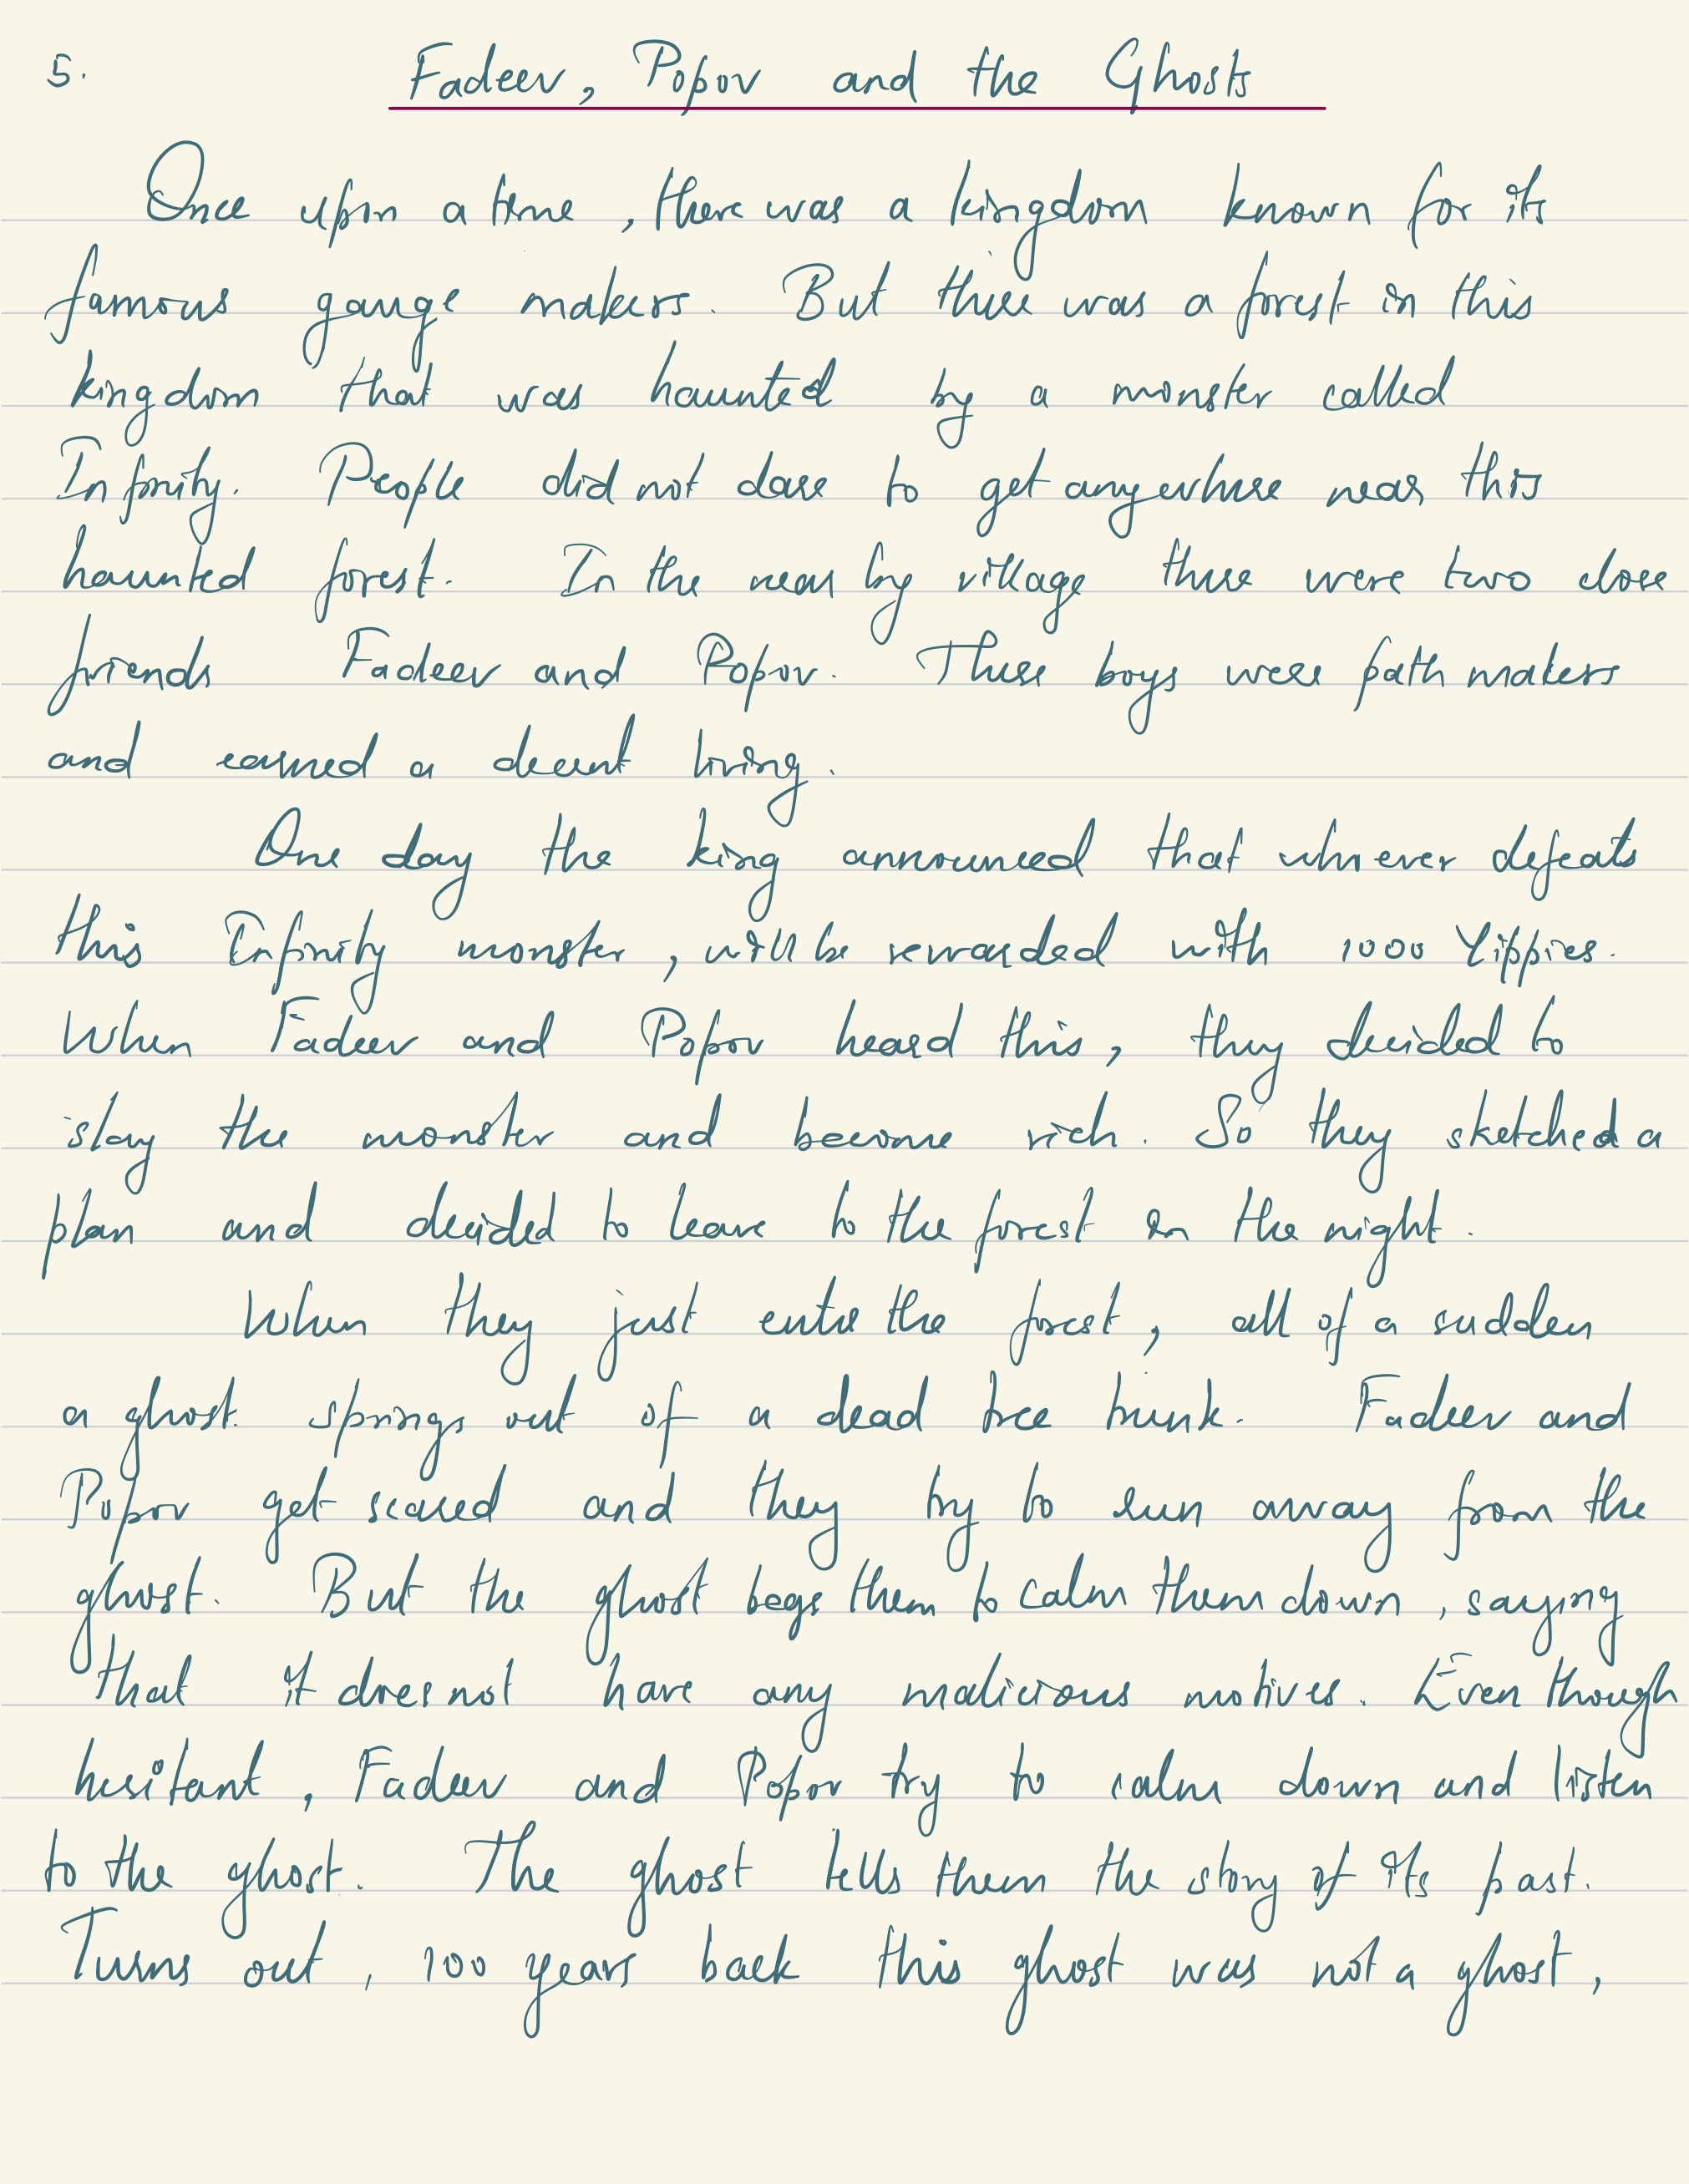 5. Fadeev, Popov and the Ghosts
Once upon a time, there was a kingdom known for its
famous gauge makers. But there was a forest in this
kingdom that was haunted by a monster called
Infinity. People did not dare to get anywhere near this
haunted forest. In the near by village there were two close
friends Fadeev and Popov. These boys were path makers
and earned a decent living.
One day the king announced that whoever defeats
this Infinity monster, will be rewarded with 1000 Yippies.
When Fadeev and Popov heard this, they decided to
slay the monster and become rich. So they sketched a
plan and decided to leave to the forest in the night.
When they just enter the forest, all of a sudden
a ghost springs out of a dead tree trunk. Fadeev and
Popov get scared and they try to run away from the
ghost. But the ghost begs them to calm them down, saying
that it does not have any malicious motives. Even though
hesitant, Fadeev and Popov try to calm down and listen
to the ghost. The ghost tells them the story of its past.
Turns out, 100 years back this ghost was not a ghost,